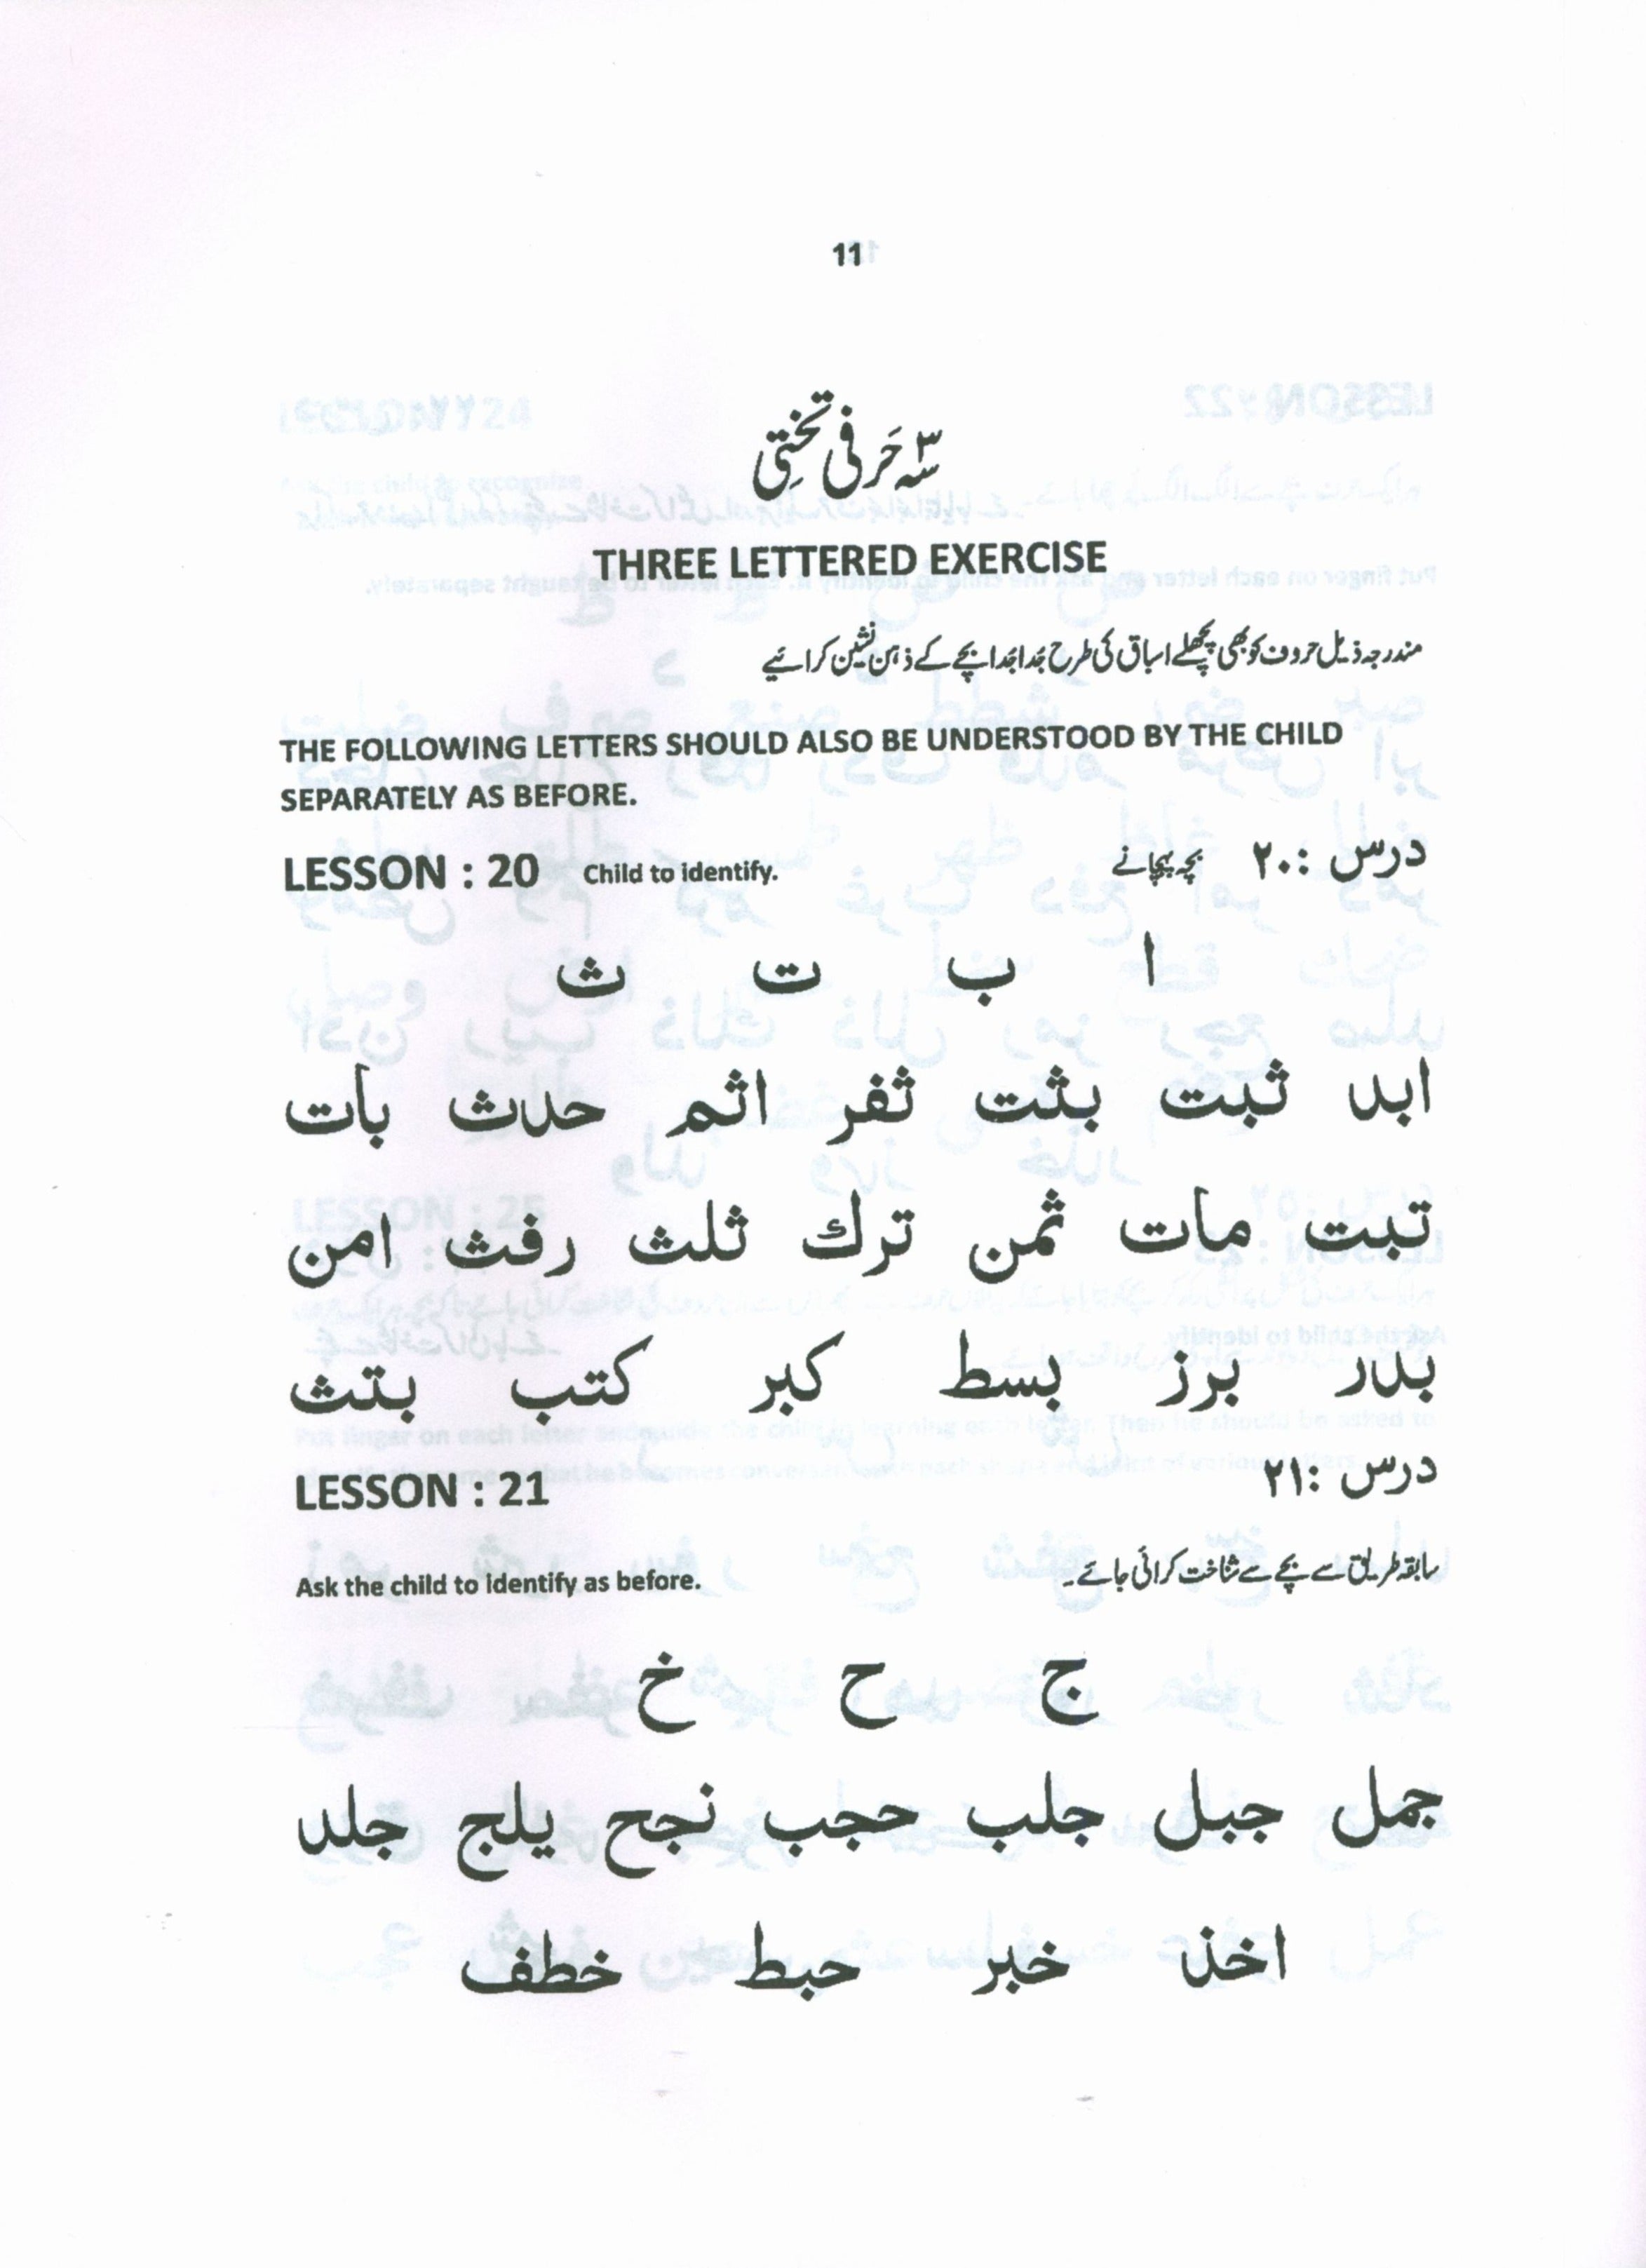 11
سہ حَرفی تختِی
THREE LETTERED EXERCISE
مندرجہ ذیل حروف کو بھی پچھلے اسباق کی طرح جُدا جُدا بچے کے ذہن نشین کرائیے
THE FOLLOWING LETTERS SHOULD ALSO BE UNDERSTOOD BY THE CHILD
SEPARATELY AS BEFORE.
LESSON : 20 Child to identify. درس :۲۰ بچہ پہچانے
ا ب ت ث
ابد ثبت بثت ثفر اثم حدث بات
تبت مات ثمن ترك ثلث رفث امن
بدر برز بسط كبر كتب بتث
LESSON : 21 درس :۲۱
Ask the child to identify as before. سابقہ طریق سے بچے سے شناخت کرائی جائے۔
ج ح خ
جمل جبل جلب حجب نجح يلج جلد
اخذ خبر حبط خطف